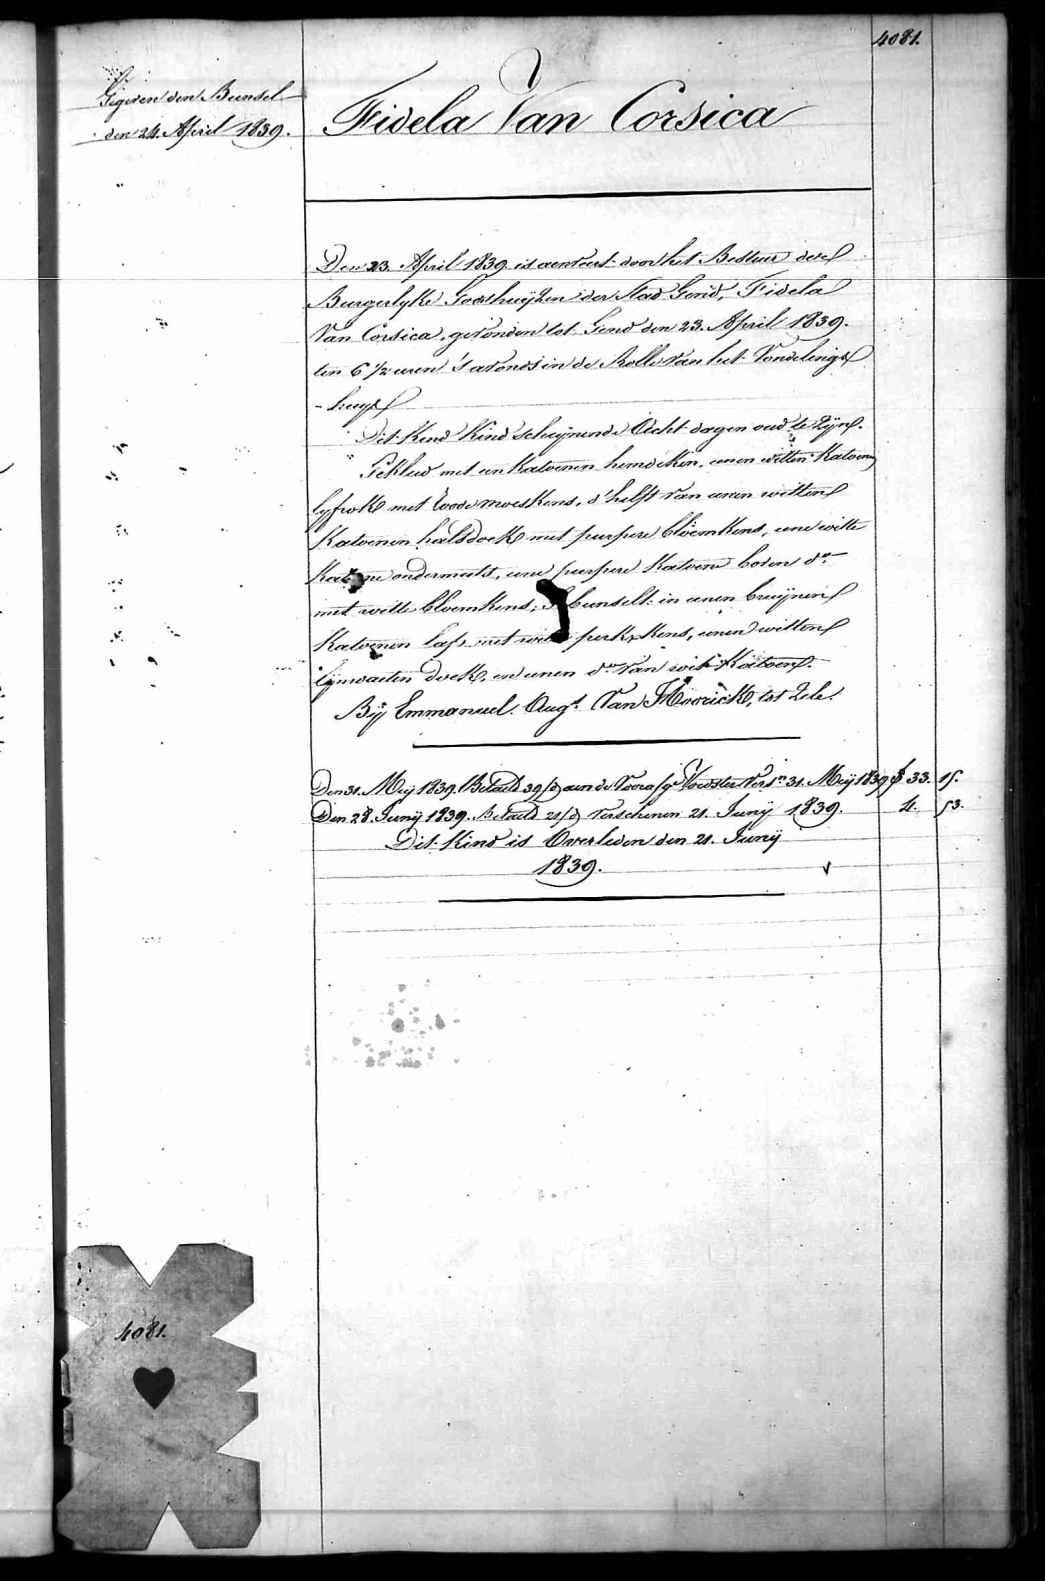 4081.
Gegeven den Bundel
den 24. April 1839.
Fidela Van Corsica
Den 23. April 1839 is aenveert door het Bestuer der
Burgerlyke Godshuyzen der Stad Gend, Fidela
Van Corsica, gevonden tot Gend den 23. April 1839.
ten 6 1/2 uren 's avonds in de Rolle van het Vondelings
-huys
Dit Kind Kind scheynende Acht dagen oud te zyn.
Gekleed met een Katoenen hemdeken, eenen witten Katoenen
lyfrok met roode moeskens, d'helft van eenen witten
Katoenen halsdoek met purpere bloemkens, eene witte
Katoene ondermuts, eene purpere Katoene boven do
met witte bloemkens, Gebunselt in eenen bruynen
Katoenen lap met witte perkskens, eenen witten
lynwaeten doek, en eenen do van wit Katoen.
By Emmanuel Augt. Van Hoorick, tot Zele.
Den 31. Mey 1839. Betaeld 39/d aen de Voorsz Voedster Versn 31. Mey 1839 f 33. 15.
Den 28. Juny 1839. Betaeld 21/d Verschenen 21. Juny 1839. 4. 53.
Dit Kind is Overleden den 21. Juny
1839.
4081.